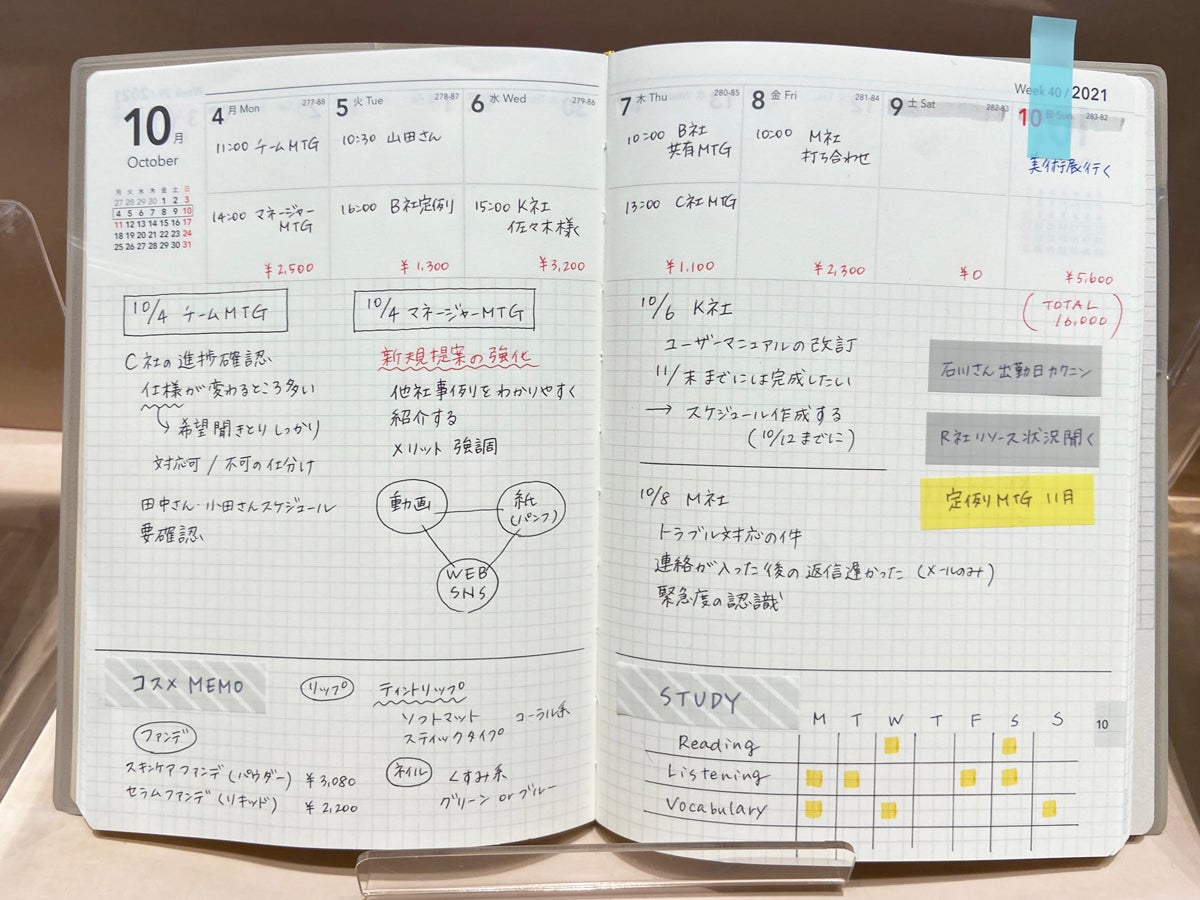 10月
October
月 火 水 木 金 土 日
27 28 29 30 1 2 3
4 5 6 7 8 9 10
11 12 13 14 15 16 17
18 19 20 21 22 23 24
25 26 27 28 29 30 31
4 月 Mon 277-88
11:00 チームMTG
14:00 マネージャー
MTG
¥2,500
5 火 Tue 278-87
10:30 山田さん
16:00 B社定例
¥1,300
6 水 Wed 279-86
15:00 K社
佐々木様
¥3,200
Week 40 / 2021
7 木 Thu 280-85
10:00 B社
共有MTG
13:00 C社MTG
¥1,100
8 金 Fri 281-84
10:00 M社
打ち合わせ
¥2,300
9 土 Sat 282-83
¥0
10 日 Sun 283-82
美術展行く
¥5,600
(TOTAL
16,000)
10/4 チームMTG
C社の進捗確認
仕様が変わるところ多い
↳希望聞きとりしっかり
対応可/不可の仕分け
田中さん・小田さんスケジュール
要確認
10/4 マネージャーMTG
新規提案の強化
他社事例をわかりやすく
紹介する
メリット強調
動画
紙
(パンフ)
WEB
SNS
10/6 K社
ユーザーマニュアルの改訂
11/末までには完成したい
→ スケジュール作成する
(10/12までに)
10/8 M社
トラブル対応の件
連絡が入った後の返信遅かった (メールのみ)
緊急度の認識
石川さん出勤日カクニン
R社リソース状況聞く
定例MTG 11月
コスメ MEMO
ファンデ
スキンケアファンデ(パウダー) ¥3,080
セラムファンデ(リキッド) ¥2,200
リップ
ティントリップ
ソフトマット コーラル系
スティックタイプ
ネイル
くすみ系
グリーン or ブルー
STUDY
M T W T F S S
Reading
Listening
Vocabulary
10